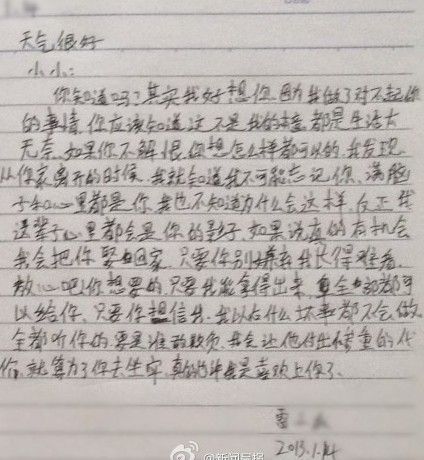 天气很好
小小:
你知道吗?其实我好想你,因为我做了对不起你
的事情,你应该知道这不是我的错,都是生活太
无奈,如果你不解恨,你想怎么样都可以的,我发现
从你家离开的时候,我就知道我不可能忘记你,满脑
子和心里都是你,我也不知道为什么会这样,反正我
这辈子心里都会是你的影子,如果说真的有机会
我会把你娶回家,只要你别嫌弃我长得难看
放心吧!你想要的只要我能拿得出来,全部都可
以给你,只要你想信我,我以后什么坏事都不会做
全都听你的,要是谁敢欺负我会让他付出惨重的代
价,就算为了你去坐牢,真的也许是喜欢上你了、
雷
2013.1.14
@新闻晨报